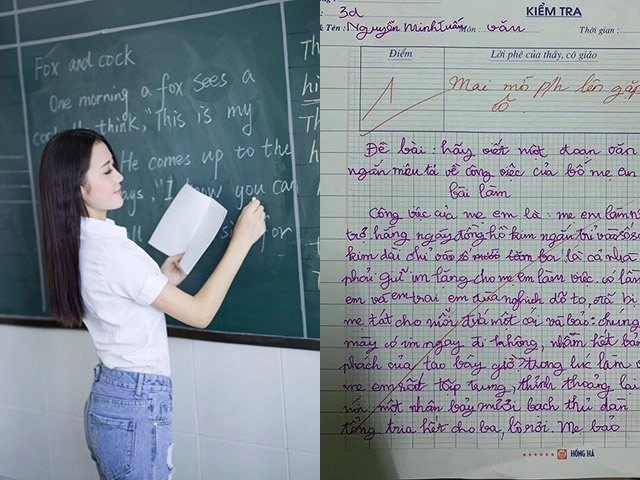 Fox and cock
One morning a fox sees a
think, "This is my
He comes up to the
you can
for
Th
hi
Th
3d
KIỂM TRA
Tên: Nguyễn Minh Tuấn Môn: Văn Thời gian:
Điểm
Lời phê của thầy, cô giáo
1
Mai mời p/h lên gặp
cô
Đề bài: hãy viết một đoạn văn
ngắn miêu tả về công việc của bố mẹ em
bài làm
Công việc của mẹ em là: mẹ em làm n
trợ, hằng ngày đồng hồ kim ngắn trỉ vào số
kim dài chỉ vào số ba là cả nhà
phải giữ im lặng cho mẹ em làm việc. có lần
em và em trai em đùa nghịch to, rồi bị
mẹ tát cho mỗi đứa một cái và bảo: chúng
mày có im ngay đi không, nhầm hết bản
phách của tao bây giờ? trong lúc làm v
mẹ em rất tập trung, thỉnh thoảng lại
một nhân bảy mươi bạch thủ dàn
trỉa hết cho ba, lô rồi. Mẹ bảo
HỒNG HÀ